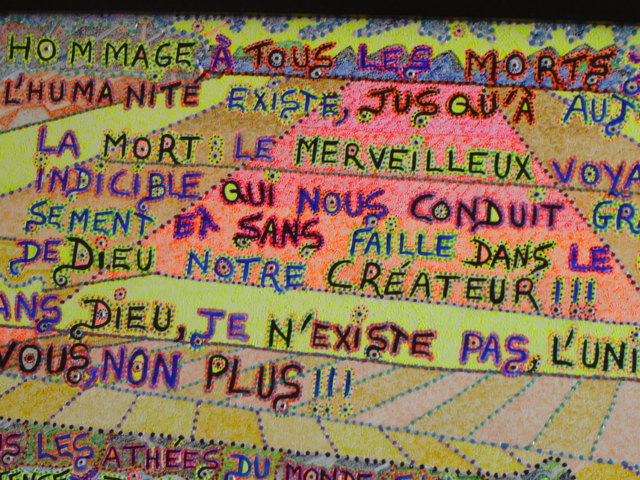 HOMMAGE À TOUS LES MORTS
L'HUMANITÉ EXISTE, JUSQU'À AUJ
LA MORT : LE MERVEILLEUX VOYA
INDICIBLE QUI NOUS CONDUIT GRA
SEMENT ET SANS FAILLE DANS LE
DE DIEU NOTRE CRÉATEUR !!!
ANS DIEU, JE N'EXISTE PAS, L'UNI
VOUS, NON PLUS !!!
S LES ATHÉES DU MONDE